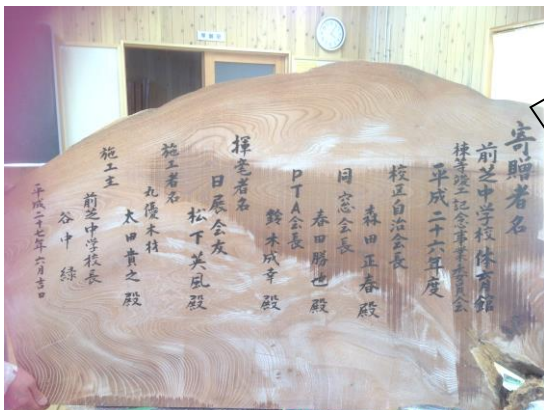 寄贈者名
前芝中学校体育館
棟等竣工記念事業委員会
平成二十六年度
校区自治会長
森田正春殿
同窓会長
春田勝也殿
PTA会長
鈴木成幸殿
揮毫者名
日展会友
松下英風殿
施工者名
丸優木材
太田貴之殿
施工主
前芝中学校長
谷中緑
平成二十七年六月吉日